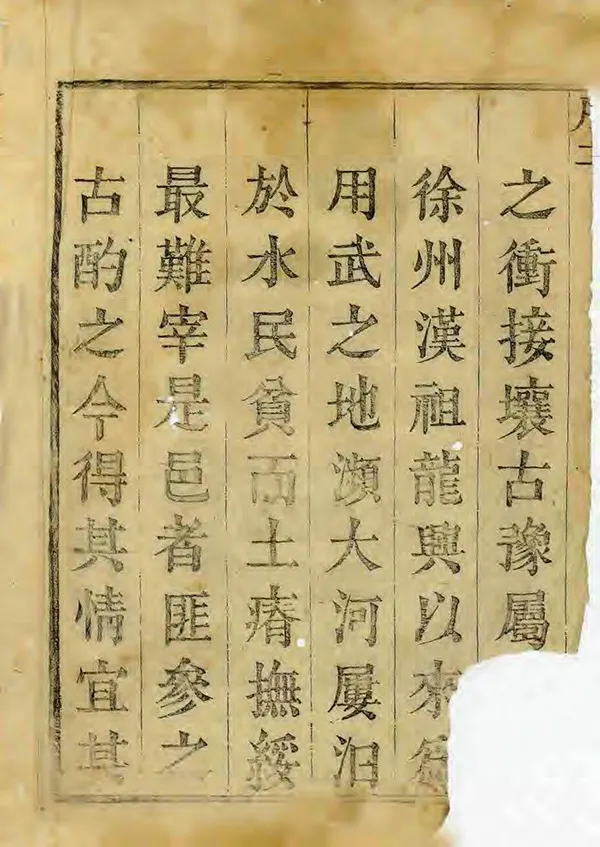 二
之衝接壤古豫屬
徐州漢祖龍興以來
用武之地瀕大河屢汩
於水民貧而土瘠撫綏
最難宰是邑者匪參之
古酌之今得其情宜其